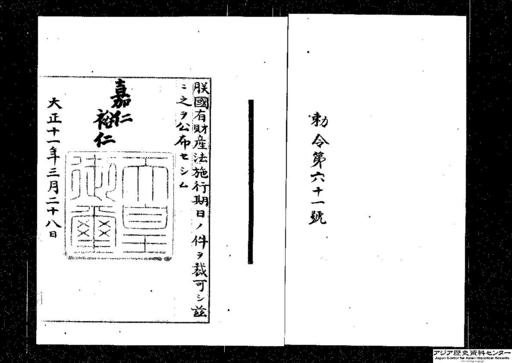 勅令第六十一號
朕國有財産法施行期日ノ件ヲ裁可シ茲
ニ之ヲ公布セシム
嘉仁
裕仁
天皇御璽
大正十一年三月二十八日
アジア歴史資料センター
Japan Center for Asian Historical Records